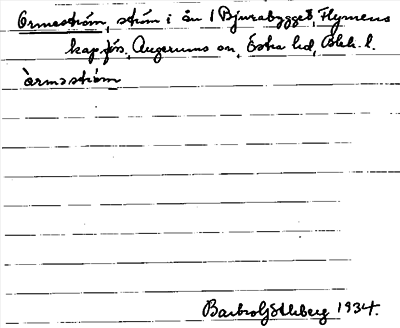 Ormaström, ström i ån i Bjurabygget, Flymens
kap.förs. Augerums sn, Östra hd, Blek. l.
òrmaström
Barbro Götlberg 1934.